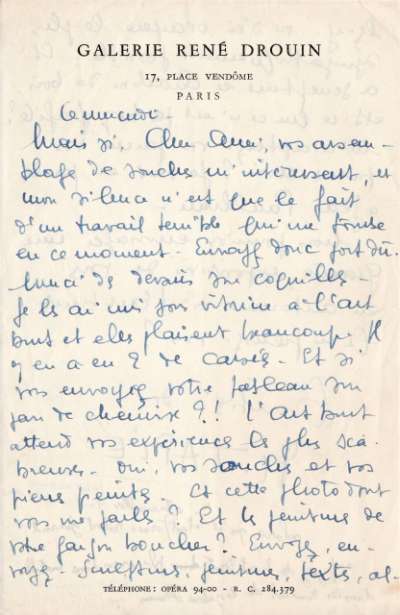 GALERIE RENÉ DROUIN
17, PLACE VENDÔME
PARIS
ce mercredi.
Mais si. Cher Ami, vos assem-
blage de souches m'intéressent, et
mon silence n'est que le fait
d'un travail terrible qui me tombe
en ce moment. Envoyez donc fort du.
Merci des dessins sur coquilles.
Je les ai mis sous vitrine à l'Art
brut et elles plaisent beaucoup. Il
y en a en 2 de cassés. Et si
vous envoyez votre tableau sur
pan de chemise ?! L'Art brut
attend vos expériences les plus sca-
breuses. Oui, vos souches et vos
pierres peintes. Et cette photo dont
vous me parlez ? Et les peintures de
votre garçon boucher ? Envoyez, en-
voyez. Sculptures, peintures, textes, al-
TÉLÉPHONE : OPÉRA 94-00 - R. C. 284.379